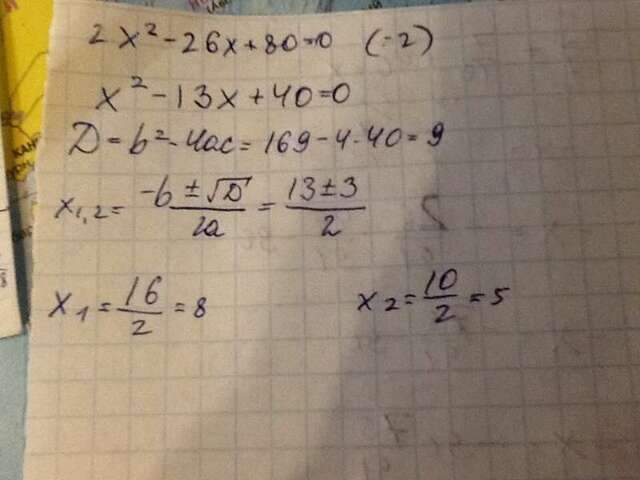 2x² - 26x + 80 = 0 (:2)
x² - 13x + 40 = 0
D = b² - 4ac = 169 - 4·40 = 9
x₁,₂ = (-b ± √D)/2a = (13 ± 3)/2
x₁ = 16/2 = 8 x₂ = 10/2 = 5